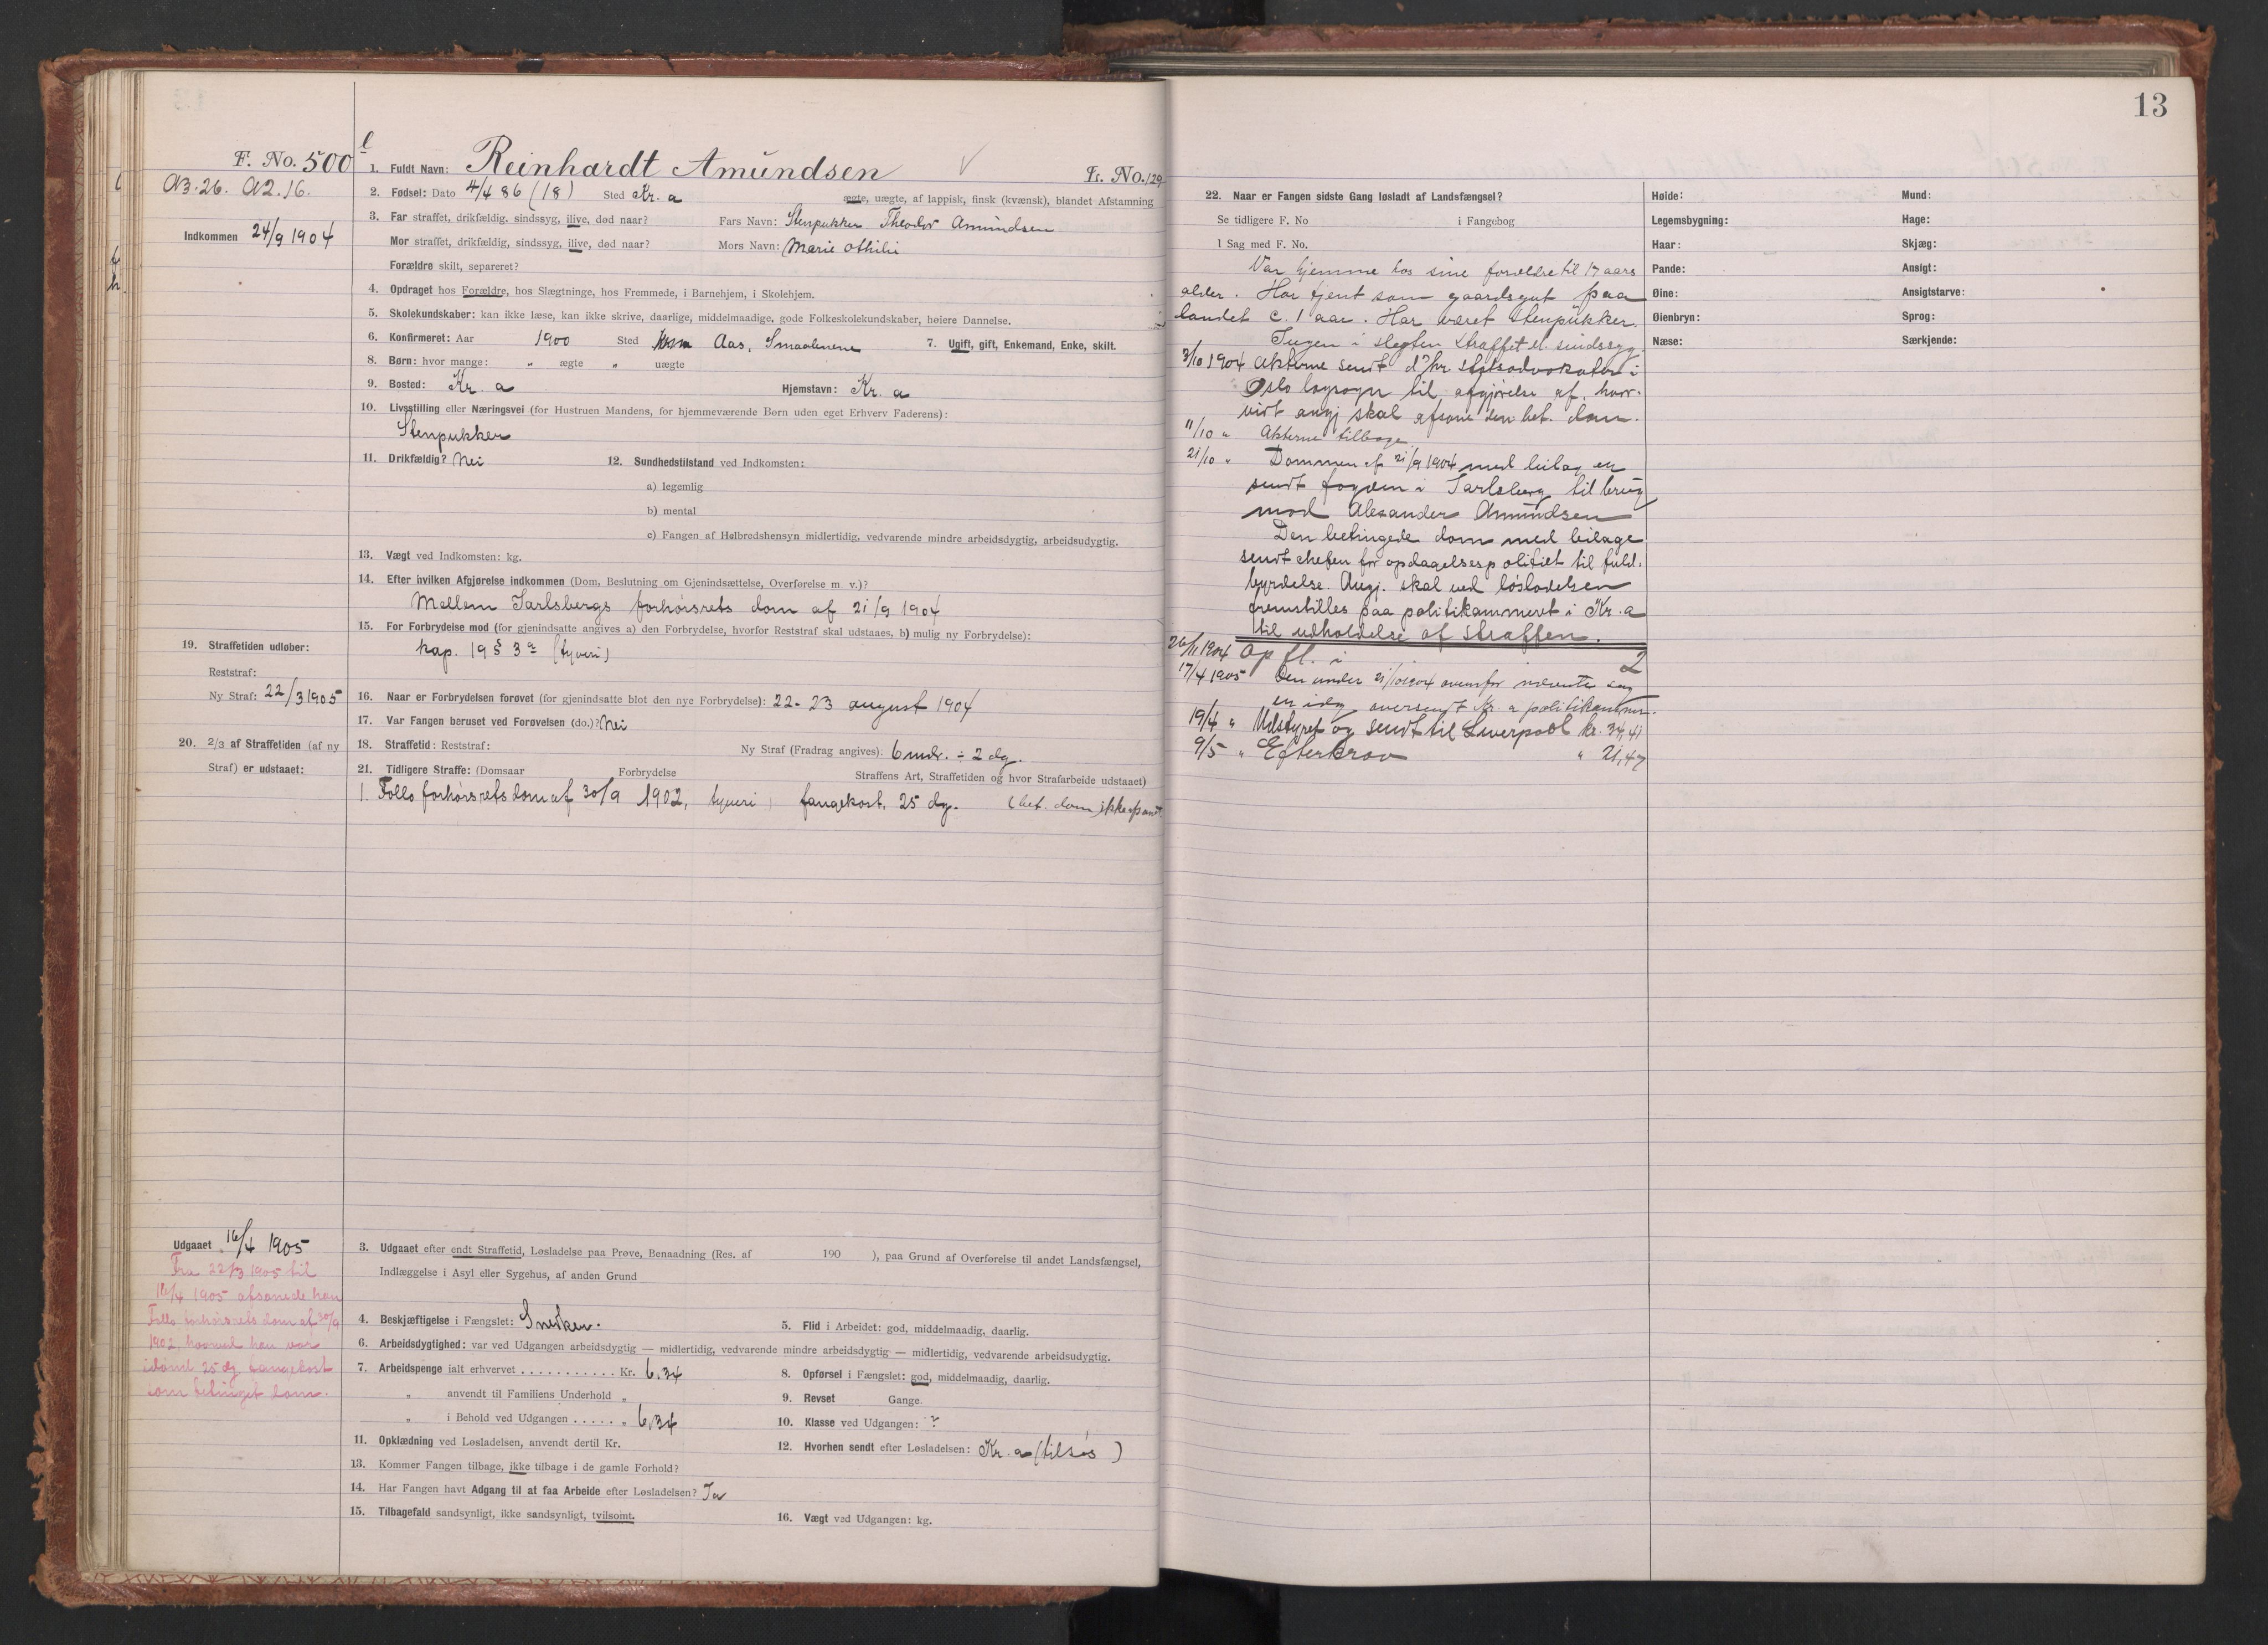 F. No. 500
A3.26. A2.16.
Indkommen 24/9 1904
1. Fuldt Navn: Reinhardt Amundsen Fr. No. 129
2. Fødsel: Dato 4/4 86 (18) Sted Kr.a ægte, uægte, af lappisk, finsk (kvænsk), blandet Afstamning
3. Far straffet, drikfældig, sindssyg, ilive, død naar? Fars Navn: Stenpukker Theodor Amundsen
Mor straffet, drikfældig, sindssyg, ilive, død naar? Mors Navn: Marie Othilie
Forældre skilt, separeret?
4. Opdraget hos Forældre, hos Slægtninge, hos Fremmede, i Barnehjem, i Skolehjem.
5. Skolekundskaber: kan ikke læse, kan ikke skrive, daarlige, middelmaadige, gode Folkeskolekundskaber, høiere Dannelse.
6. Konfirmeret: Aar 1900 Sted Aas, Smaalenene 7. Ugift, gift, Enkemand, Enke, skilt.
8. Børn: hvor mange: " ægte " uægte
9. Bosted: Kr.a Hjemstavn: Kr.a
10. Livsstilling eller Næringsvei (for Hustruen Mandens, for hjemmeværende Børn uden eget Erhverv Faderens):
Stenpukker
11. Drikfældig? Nei 12. Sundhedstilstand ved Indkomsten:
a) legemlig
b) mental
c) Fangen af Helbredshensyn midlertidig, vedvarende mindre arbeidsdygtig, arbeidsudygtig.
13. Vægt ved Indkomsten: kg.
14. Efter hvilken Afgjørelse indkommen (Dom, Beslutning om Gjenindsættelse, Overførelse m. v.)?
Mellem Jarlsbergs forhørsrets dom af 21/9 1904
15. For Forbrydelse mod (for gjenindsatte angives a) den Forbrydelse, hvorfor Reststraf skal udstaaes, b) mulig ny Forbrydelse):
kap. 19 § 3 (tyveri)
19. Straffetiden udløber:
Reststraf:
Ny Straf: 22/3 1905
16. Naar er Forbrydelsen forøvet (for gjenindsatte blot den nye Forbrydelse): 22-23 august 1904
17. Var Fangen beruset ved Forøvelsen (do.)? Nei
20. 2/3 af Straffetiden (af ny
Straf) er udstaaet:
18. Straffetid: Reststraf: Ny Straf (Fradrag angives): 6 mdr. ÷ 2 dg.
21. Tidligere Straffe: (Domsaar Forbrydelse Straffens Art, Straffetiden og hvor Strafarbeide udstaaet)
1. Follo forhørsrets dom af 30/9 1902, tyveri, fangekost, 25 dg. (bet. dom, ikke afsonet
Udgaaet 16/4 1905
Fra 22/3 1905 til
16/4 1905 afsonede han
Follo forhørsrets dom af 30/9
1902, hvorved han var
idømt 25 dg. fangekost
som betinget dom.
3. Udgaaet efter endt Straffetid, Løsladelse paa Prøve, Benaadning (Res. af 190 ), paa Grund af Overførelse til andet Landsfængsel,
Indlæggelse i Asyl eller Sygehus, af anden Grund
4. Beskjæftigelse i Fængslet: Snedker. 5. Flid i Arbeidet: god, middelmaadig, daarlig.
6. Arbeidsdygtighed: var ved Udgangen arbeidsdygtig — midlertidig, vedvarende mindre arbeidsdygtig — midlertidig, vedvarende arbeidsudygtig.
7. Arbeidspenge ialt erhvervet . . . . . . . . . . . Kr. 6,34 8. Opførsel i Fængslet: god, middelmaadig, daarlig.
" anvendt til Familiens Underhold " 9. Revset Gange.
" i Behold ved Udgangen . . . . . " 6,34 10. Klasse ved Udgangen: ?
11. Opklædning ved Løsladelsen, anvendt dertil Kr. 12. Hvorhen sendt efter Løsladelsen: Kr.a (tilsøs)
13. Kommer Fangen tilbage, ikke tilbage i de gamle Forhold?
14. Har Fangen havt Adgang til at faa Arbeide efter Løsladelsen? Ja
15. Tilbagefald sandsynligt, ikke sandsynligt, tvilsomt. 16. Vægt ved Udgangen: kg.
13
22. Naar er Fangen sidste Gang løsladt af Landsfængsel?
Se tidligere F. No i Fangebog
I Sag med F. No.
Var hjemme hos sine forældre til 17 aars
alder. Har tjent som gaardsgut paa
landet c. 1 aar. Har været stenpukker.
Ingen i slegten straffet el. sindssyg.
3/10 1904 Akterne sendt d'hr. statsadvokaten i
Oslo lagsogn til afgjørelse af, hvor-
vidt angj skal afsone den bet. dom.
11/10 " Akterne tilbage.
21/10 " Dommen af 21/9 1904 med bilag er
sendt fogden i Jarlsberg til brug
mod Alexander Amundsen
Den betingede dom med bilage
sendt chefen for opdagelsespolitiet til fuld-
byrdelse. Angj. skal ved løsladelsen
fremstilles paa politikammeret i Kr.a
til udholdelse af straffen.
26/11 1904 Op fl. i 2
17/4 1905 Den under 21/10 1904 ovenfor nævnte sag
er idag oversendt Kr.a politikammer.
19/4 " Udstyret og sendt til Liverpool kr. 34,41
9/5 " Efterkrav " 21,47
Høide: Mund:
Legemsbygning: Hage:
Haar: Skjæg:
Pande: Ansigt:
Øine: Ansigtsfarve:
Øienbryn: Sprog:
Næse: Særkjende: